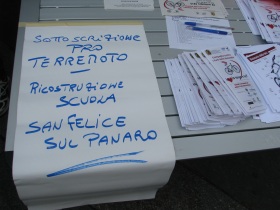 SOTTOSCRIZIONE
PRO
TERREMOTO
RICOSTRUZIONE
SCUOLA
SAN FELICE
SUL PANARO